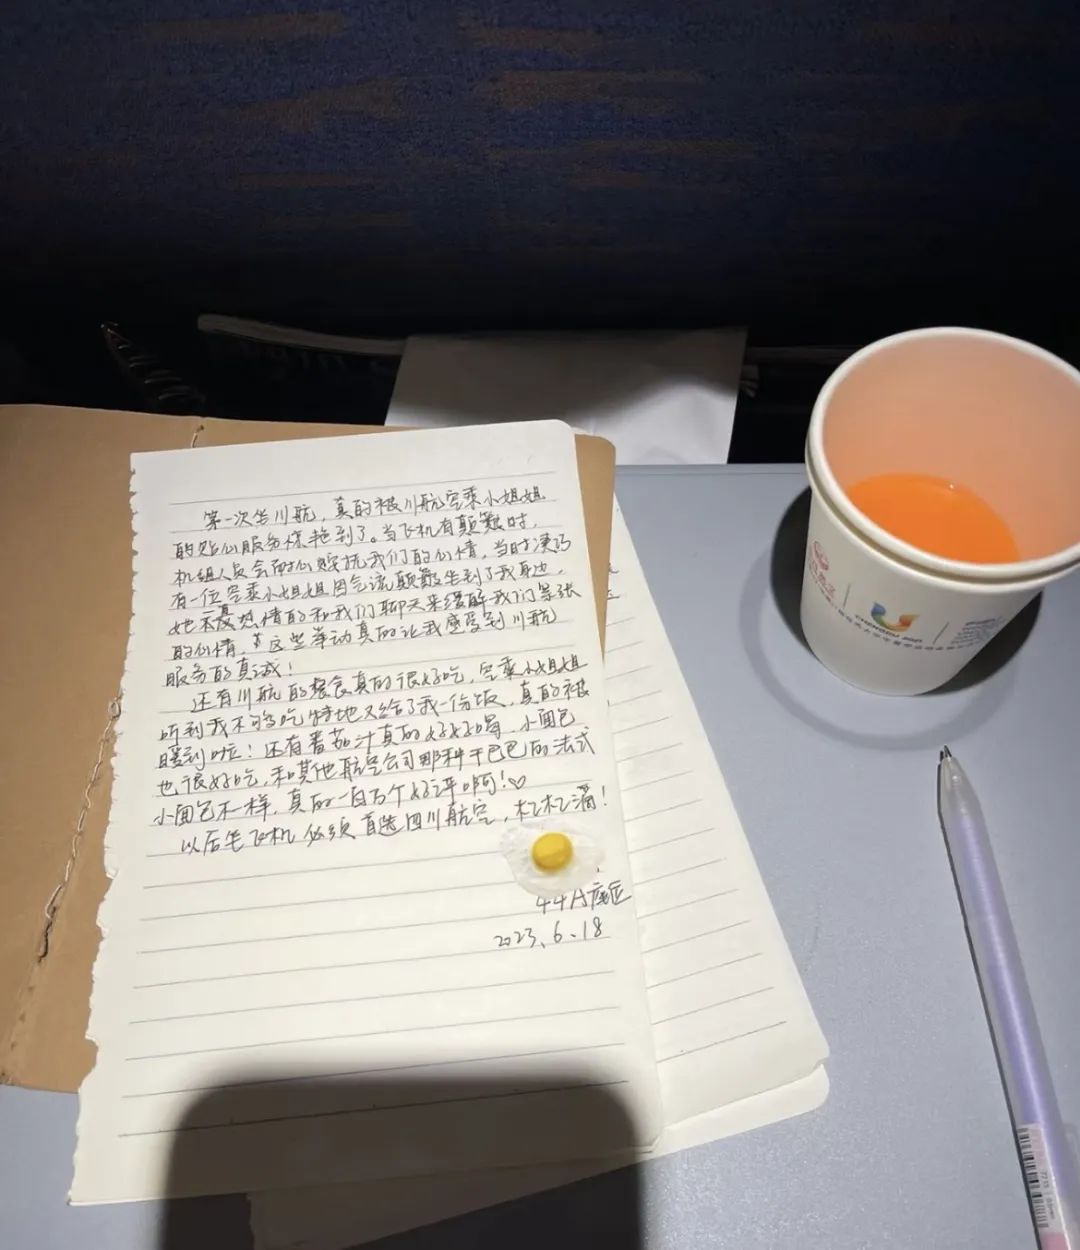 第一次坐川航，真的被川航空乘小姐姐
的贴心服务惊艳到了。当飞机有颠簸时，
机组人员会耐心安抚我们的心情，当时凑巧
有一位空乘小姐姐因气流颠簸坐到了我身边，
她不厌热情的和我们聊天来缓解我们紧张
的心情，这些举动真的让我感受到川航
服务的真诚！
还有川航的餐食真的很好吃，空乘小姐姐
听到我不够吃特地又给了我一份饭，真的被
暖到啦！还有番茄汁真的好好喝，小面包
也很好吃，和其他航空公司那种干巴巴的法式
小面包不一样，真的一百万个好评啊！♡
以后坐飞机必须首选四川航空，杠杠滴！
44A座位
2023.6.18
CHENGDU 2021